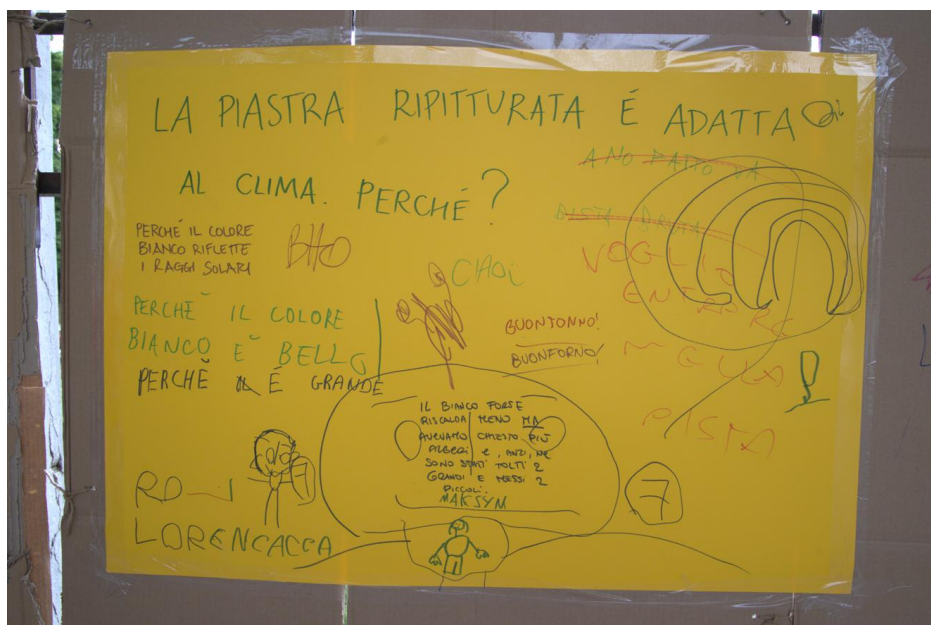 LA PIASTRA RIPITTURATA É ADATTA
AL CLIMA. PERCHÉ?
PERCHÉ IL COLORE
BIANCO RIFLETTE
I RAGGI SOLARI
BHO
CIAO
PERCHÈ IL COLORE
BIANCO E' BELLO
PERCHÈ IL É GRANDE
BUONTONNO!
BUONFORNO!
VOGLIO
ENTRARE
NELLA
PISTA
IL BIANCO FORSE
RISCALDA MENO MA
AVEVAMO CHIESTO PIÙ
ALBERI E, ANZI, NE
SONO STATI TOLTI 2
GRANDI E MESSI 2
PICCOLI.
MAKSYM
7
LORENCACCA